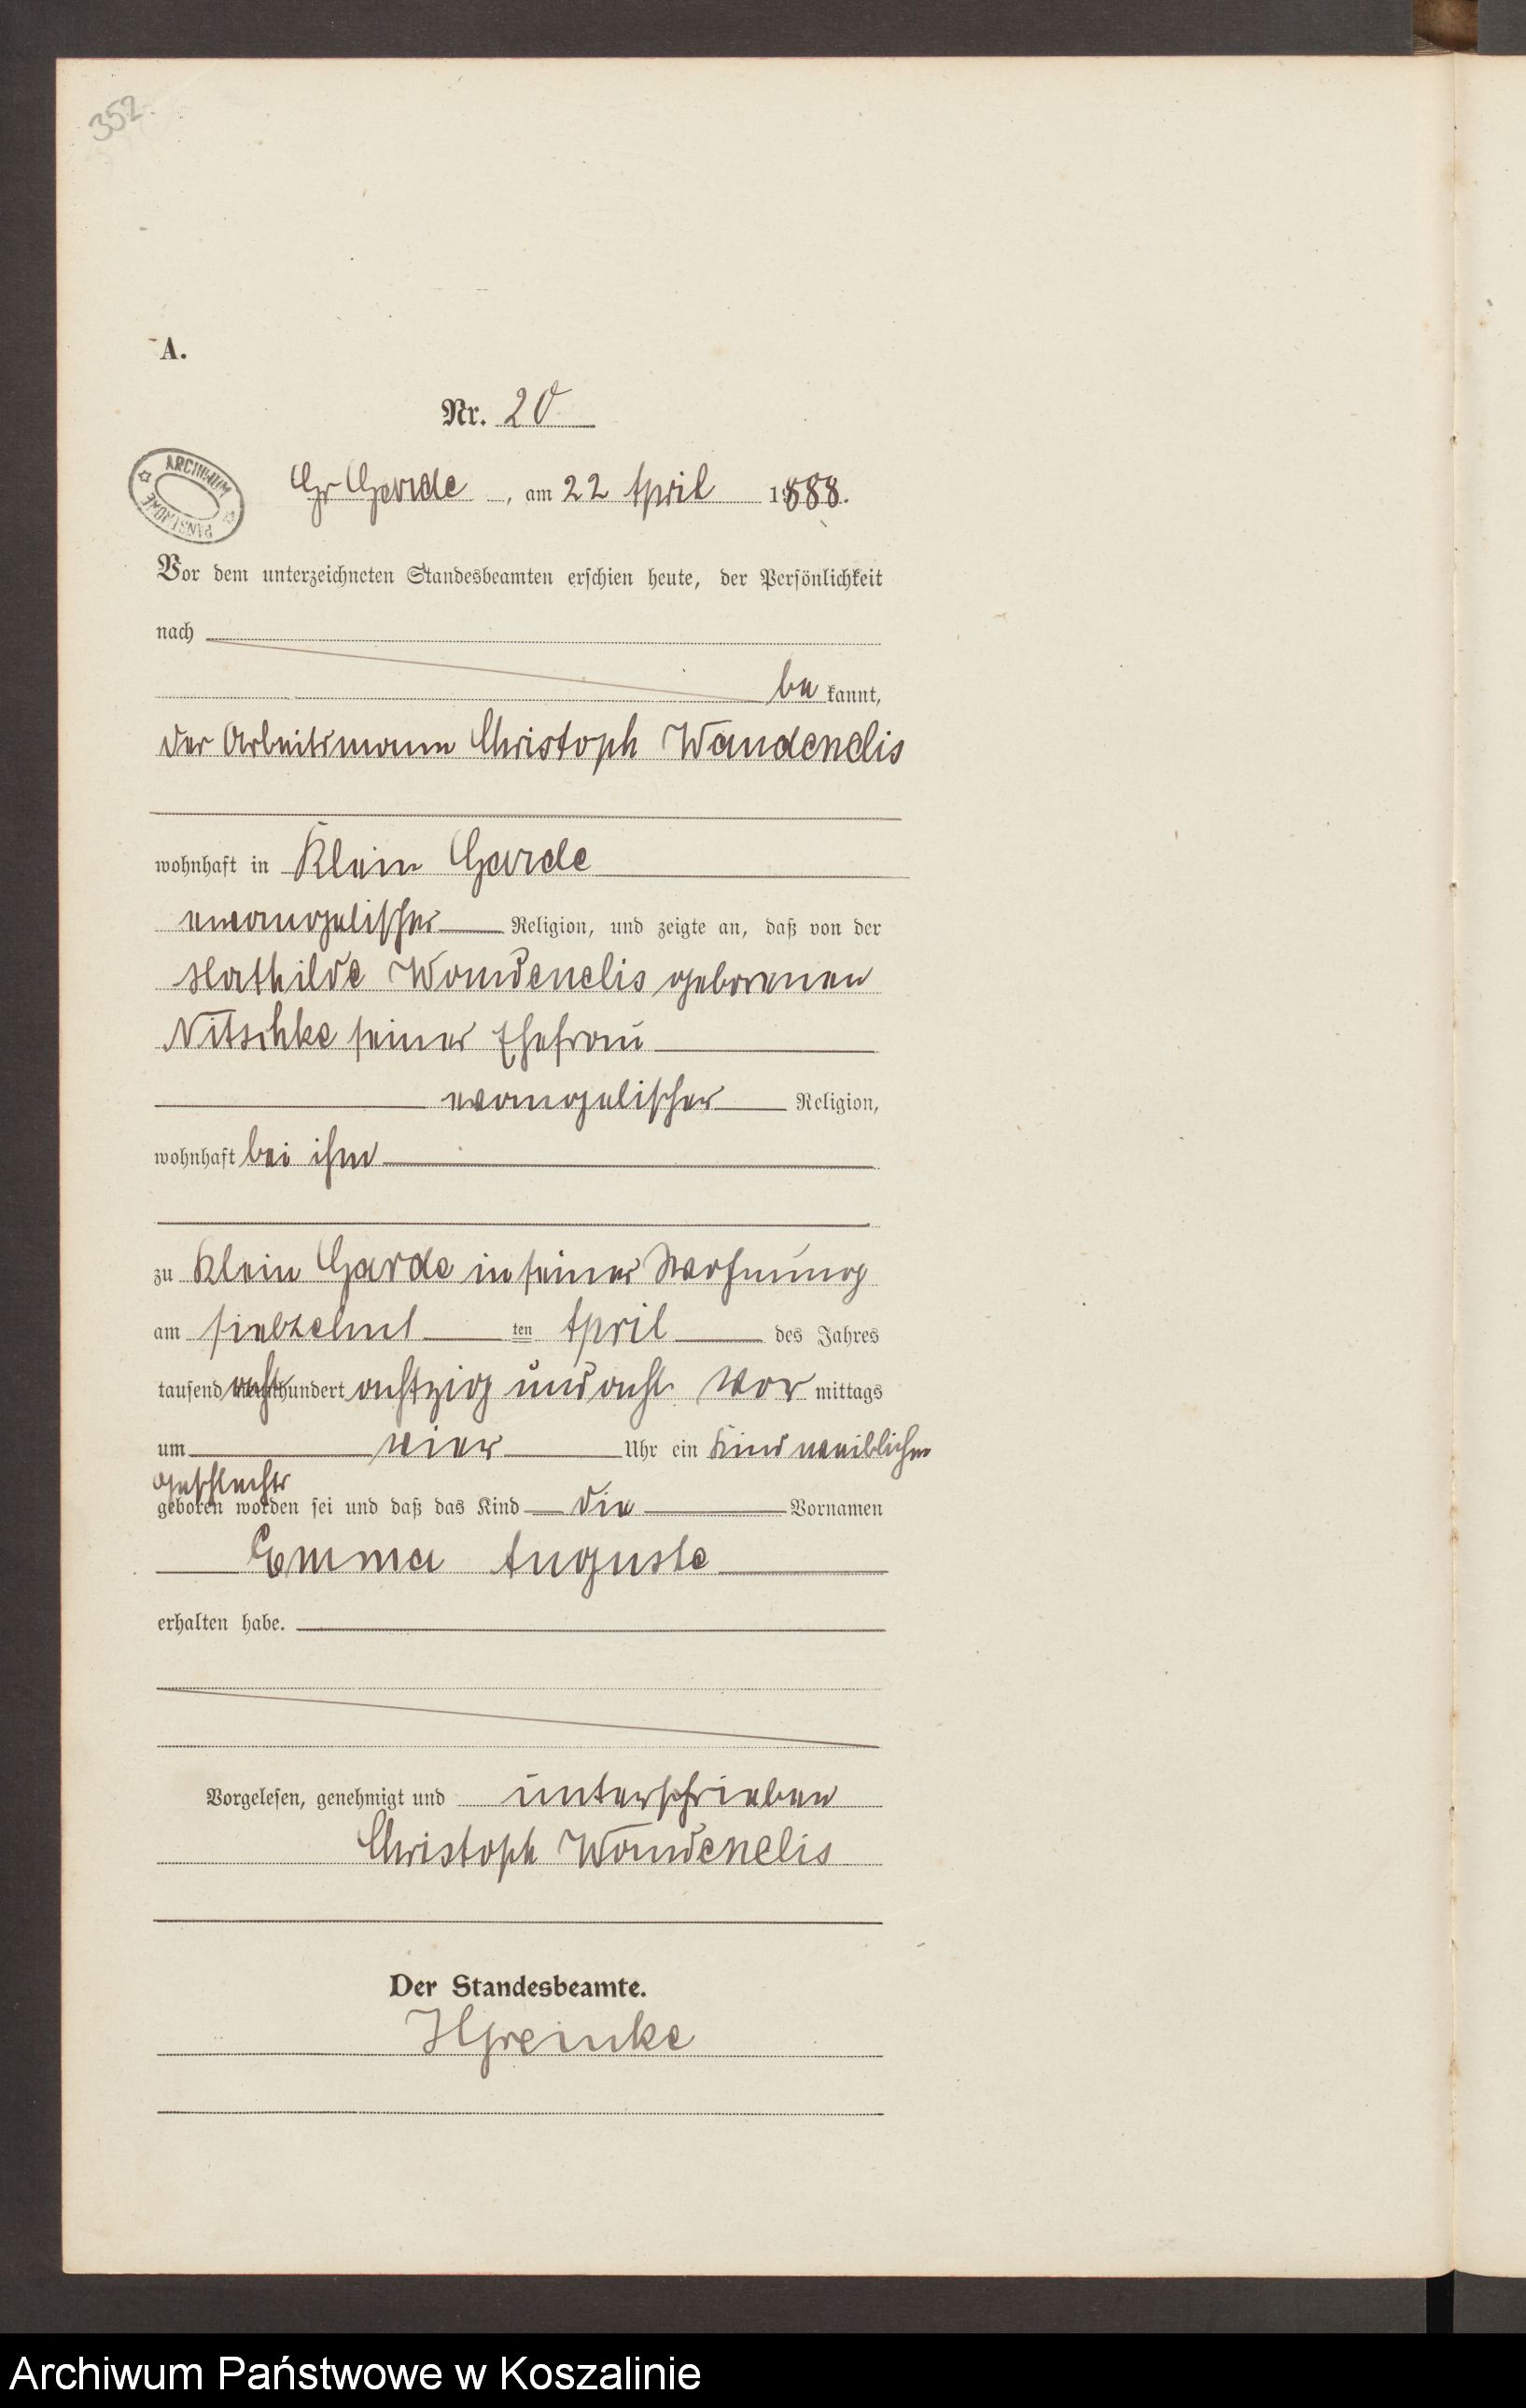 352.
A.
Nr. 20
ARCHIWUM PAŃSTWOWE
Gr Garde, am 22 April 1888.
Vor dem unterzeichneten Standesbeamten erschien heute, der Persönlichkeit
nach
be kannt,
der Arbeitsmann Christoph Wandenelis
wohnhaft in Klein Garde
evangelischer Religion, und zeigte an, daß von der
Mathilde Wandenelis geborenen
Nitschke seiner Ehefrau
evangelischer Religion,
wohnhaft bei ihm
zu Klein Garde in seiner Wohnung
am siebzehnt ten April des Jahres
tausend acht hundert achtzig und acht Vor mittags
um vier Uhr ein Kind weiblichen
Geschlechts
geboren worden sei und daß das Kind die Vornamen
Emma Auguste
erhalten habe.
Vorgelesen, genehmigt und unterschrieben
Christoph Wandenelis
Der Standesbeamte.
Archiwum Państwowe w Koszalinie